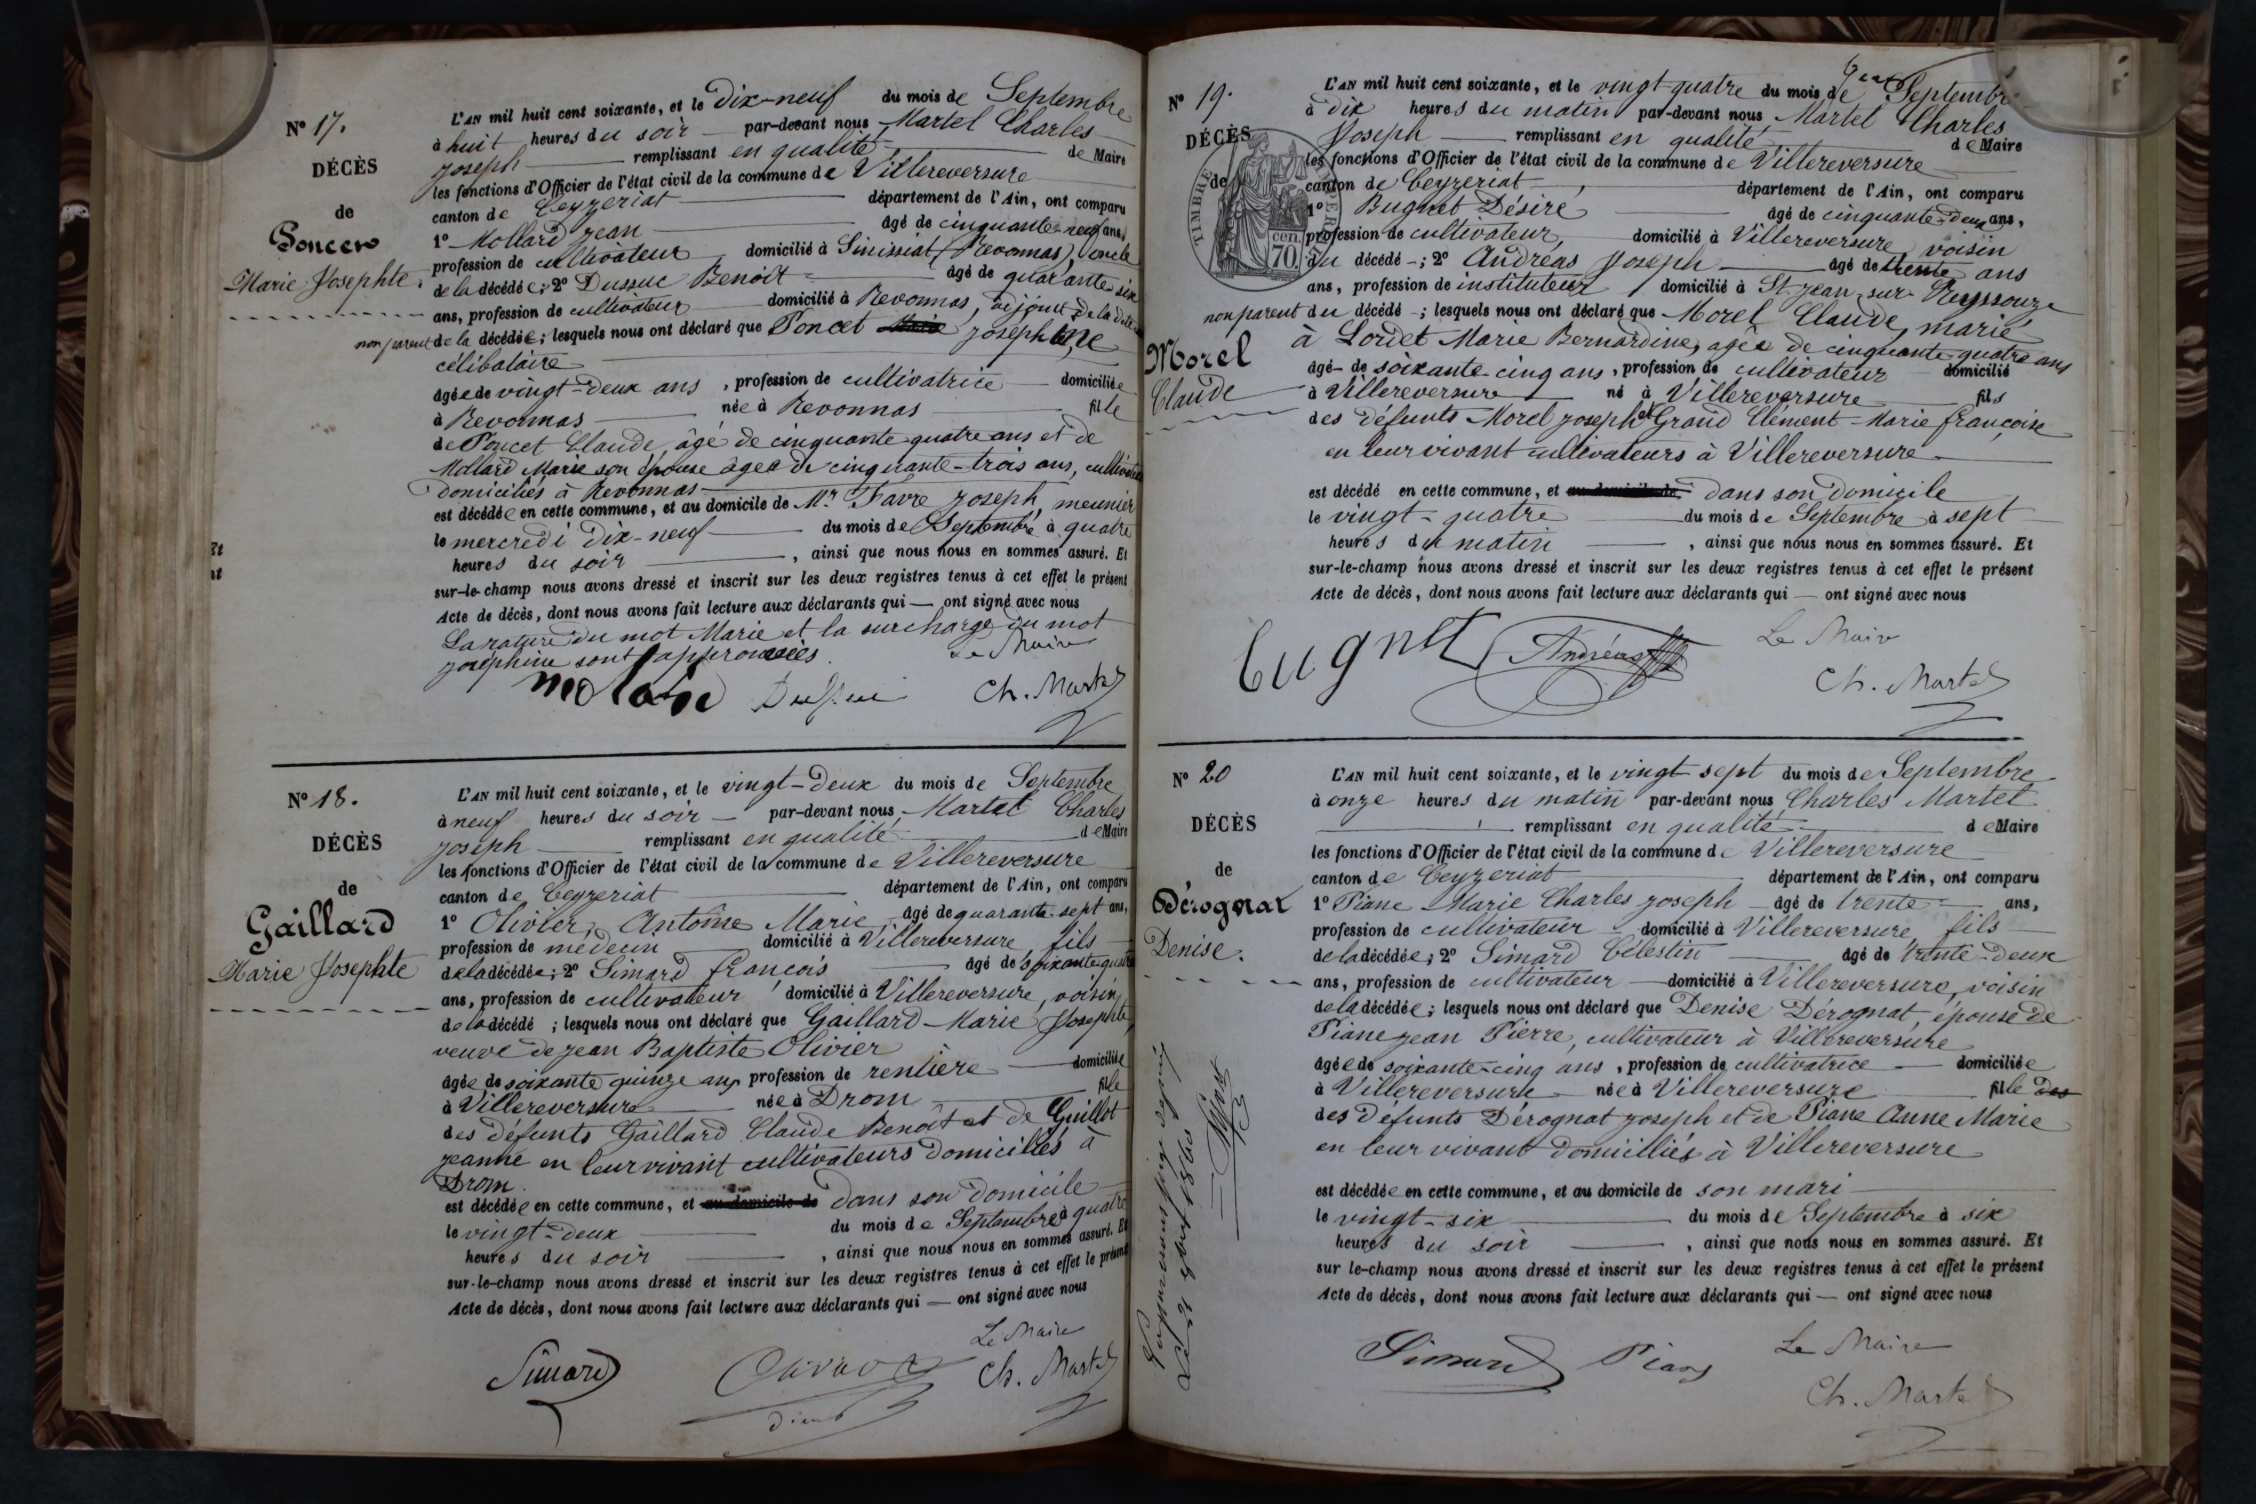 N° 17.
DÉCÈS
de
Poncet
Marie Josephte.
L'AN mil huit cent soixante, et le dix-neuf du mois de Septembre
à huit heures du soir par-devant nous Martel Charles
Joseph remplissant en qualité de Maire
les fonctions d'Officier de l'état civil de la commune de Villereversure
canton de Ceyzeriat département de l'Ain, ont comparu
1° Mollard Jean âgé de cinquante-neuf ans,
profession de cultivateur domicilié à Simissiat (Revonnas), oncle
de la décédée; 2° Dussuc Benoît âgé de quarante six
ans, profession de cultivateur domicilié à Revonnas, adjoint de la dite
non parent de la décédée; lesquels nous ont déclaré que Poncet Marie Josephine
célibataire
âgée de vingt-deux ans, profession de cultivatrice domiciliée
à Revonnas née à Revonnas fille
de Poncet Claude, âgé de cinquante quatre ans et de
Mollard Marie son épouse âgée de cinquante-trois ans,
domiciliés à Revonnas
est décédée en cette commune, et au domicile de Mr Favre Joseph, meunier
le mercredi dix-neuf du mois de Septembre à quatre
heures du soir, ainsi que nous nous en sommes assuré. Et
sur-le-champ nous avons dressé et inscrit sur les deux registres tenus à cet effet le présent
Acte de décès, dont nous avons fait lecture aux déclarants qui — ont signé avec nous
La rature du mot Marie et la surcharge du mot
Joséphine sont approuvées. Le Maire
molard Dussuc Ch. Martel
N° 18.
DÉCÈS
de
Gaillard
Marie Josephte
L'AN mil huit cent soixante, et le vingt-deux du mois de Septembre
à neuf heures du soir — par-devant nous Martel Charles
Joseph remplissant en qualité de Maire
les fonctions d'Officier de l'état civil de la commune de Villereversure
canton de Ceyzeriat département de l'Ain, ont comparu
1° Olivier, Antoine Marie âgé de quarante sept ans,
profession de médecin domicilié à Villereversure, fils
de la décédée; 2° Simard François âgé de soixante quatre
ans, profession de cultivateur domicilié à Villereversure, voisin
de la décédé; lesquels nous ont déclaré que Gaillard Marie Josephte,
veuve de Jean Baptiste Olivier
âgée de soixante quinze ans, profession de rentière domiciliée
à Villereversure née à Drom fille
des défunts Gaillard Claude Benoît et de Guillot
Jeanne en leur vivant cultivateurs domiciliés à
Drom.
est décédée en cette commune, et au domicile de dans son domicile
le vingt-deux du mois de Septembre à quatre
heures du soir, ainsi que nous nous en sommes assuré. Et
sur-le-champ nous avons dressé et inscrit sur les deux registres tenus à cet effet le présent
Acte de décès, dont nous avons fait lecture aux déclarants qui — ont signé avec nous
Le Maire
Simard Olivier Ch. Martel
N° 19.
DÉCÈS
de
TIMBRE IMPERIAL
70. cen.
Morel
Claude
L'AN mil huit cent soixante, et le vingt-quatre du mois de Septembre
à dix heures du matin par-devant nous Martel Charles
Joseph remplissant en qualité de Maire
les fonctions d'Officier de l'état civil de la commune de Villereversure
canton de Ceyzeriat département de l'Ain, ont comparu
1° Bugnet Désiré âgé de cinquante-deux ans,
profession de cultivateur, domicilié à Villereversure voisin
du décédé -; 2° Andréas Joseph âgé de trente ans
ans, profession de instituteur domicilié à St Jean-sur-Reyssouze
non parent du décédé -; lesquels nous ont déclaré que Morel Claude, marié
à Loudet Marie Bernardine, agée de cinquante-quatre ans
âgé de soixante cinq ans, profession de cultivateur domicilié
à Villereversure né à Villereversure fils
des défunts Morel Joseph et Grand Clément-Marie Françoise
en leur vivant cultivateurs à Villereversure
est décédé en cette commune, et au domicile de dans son domicile
le vingt-quatre du mois de Septembre à sept
heures du matin, ainsi que nous nous en sommes assuré. Et
sur-le-champ nous avons dressé et inscrit sur les deux registres tenus à cet effet le présent
Acte de décès, dont nous avons fait lecture aux déclarants qui — ont signé avec nous
Bugnet Andréas Le Maire
Ch. Martel
N° 20
DÉCÈS
de
Dérognat
Denise.
L'AN mil huit cent soixante, et le vingt-sept du mois de Septembre
à onze heures du matin par-devant nous Charles Martel
remplissant en qualité de Maire
les fonctions d'Officier de l'état civil de la commune de Villereversure
canton de Ceyzeriat département de l'Ain, ont comparu
1° Piane Marie Charles Joseph âgé de trente ans,
profession de cultivateur domicilié à Villereversure, fils
de la décédée; 2° Simard Célestin âgé de trente-deux
ans, profession de cultivateur domicilié à Villereversure, voisin
de la décédée; lesquels nous ont déclaré que Denise Dérognat, épouse de
Piane Jean Pierre, cultivateur à Villereversure
âgée de soixante-cinq ans, profession de cultivatrice domiciliée
à Villereversure née à Villereversure fille des
des défunts Dérognat Joseph et de Piane Anne Marie
en leur vivant domiciliés à Villereversure
est décédée en cette commune, et au domicile de son mari
le vingt-six du mois de Septembre à six
heures du soir, ainsi que nous nous en sommes assuré. Et
sur le-champ nous avons dressé et inscrit sur les deux registres tenus à cet effet le présent
Acte de décès, dont nous avons fait lecture aux déclarants qui — ont signé avec nous
Simard Piane Le Maire
Ch. Martel